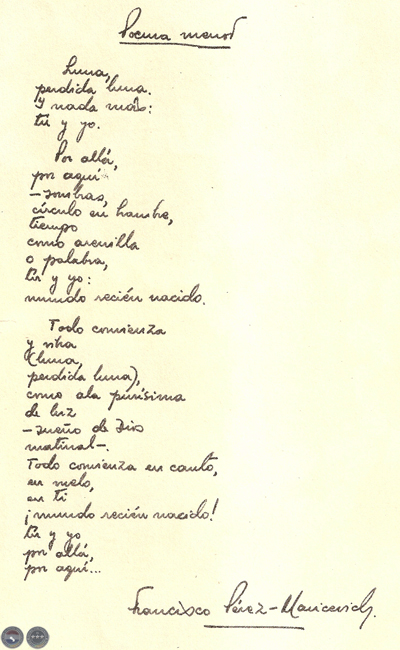 Poema menor
Luna,
perdida luna.
Y nada más:
tú y yo.
Por allá,
por aquí
–sombras,
círculo en hambre,
tiempo
como arenilla
o palabra,
tú y yo:
mundo recién nacido.
Todo comienza
y vira
(luna,
perdida luna),
como ala purísima
de luz
–sueño de Dios
matinal–.
Todo comienza en canto,
en vuelo,
en ti
¡mundo recién nacido!
tú y yo
por allá,
por aquí...
Francisco Pérez-Maricevich.